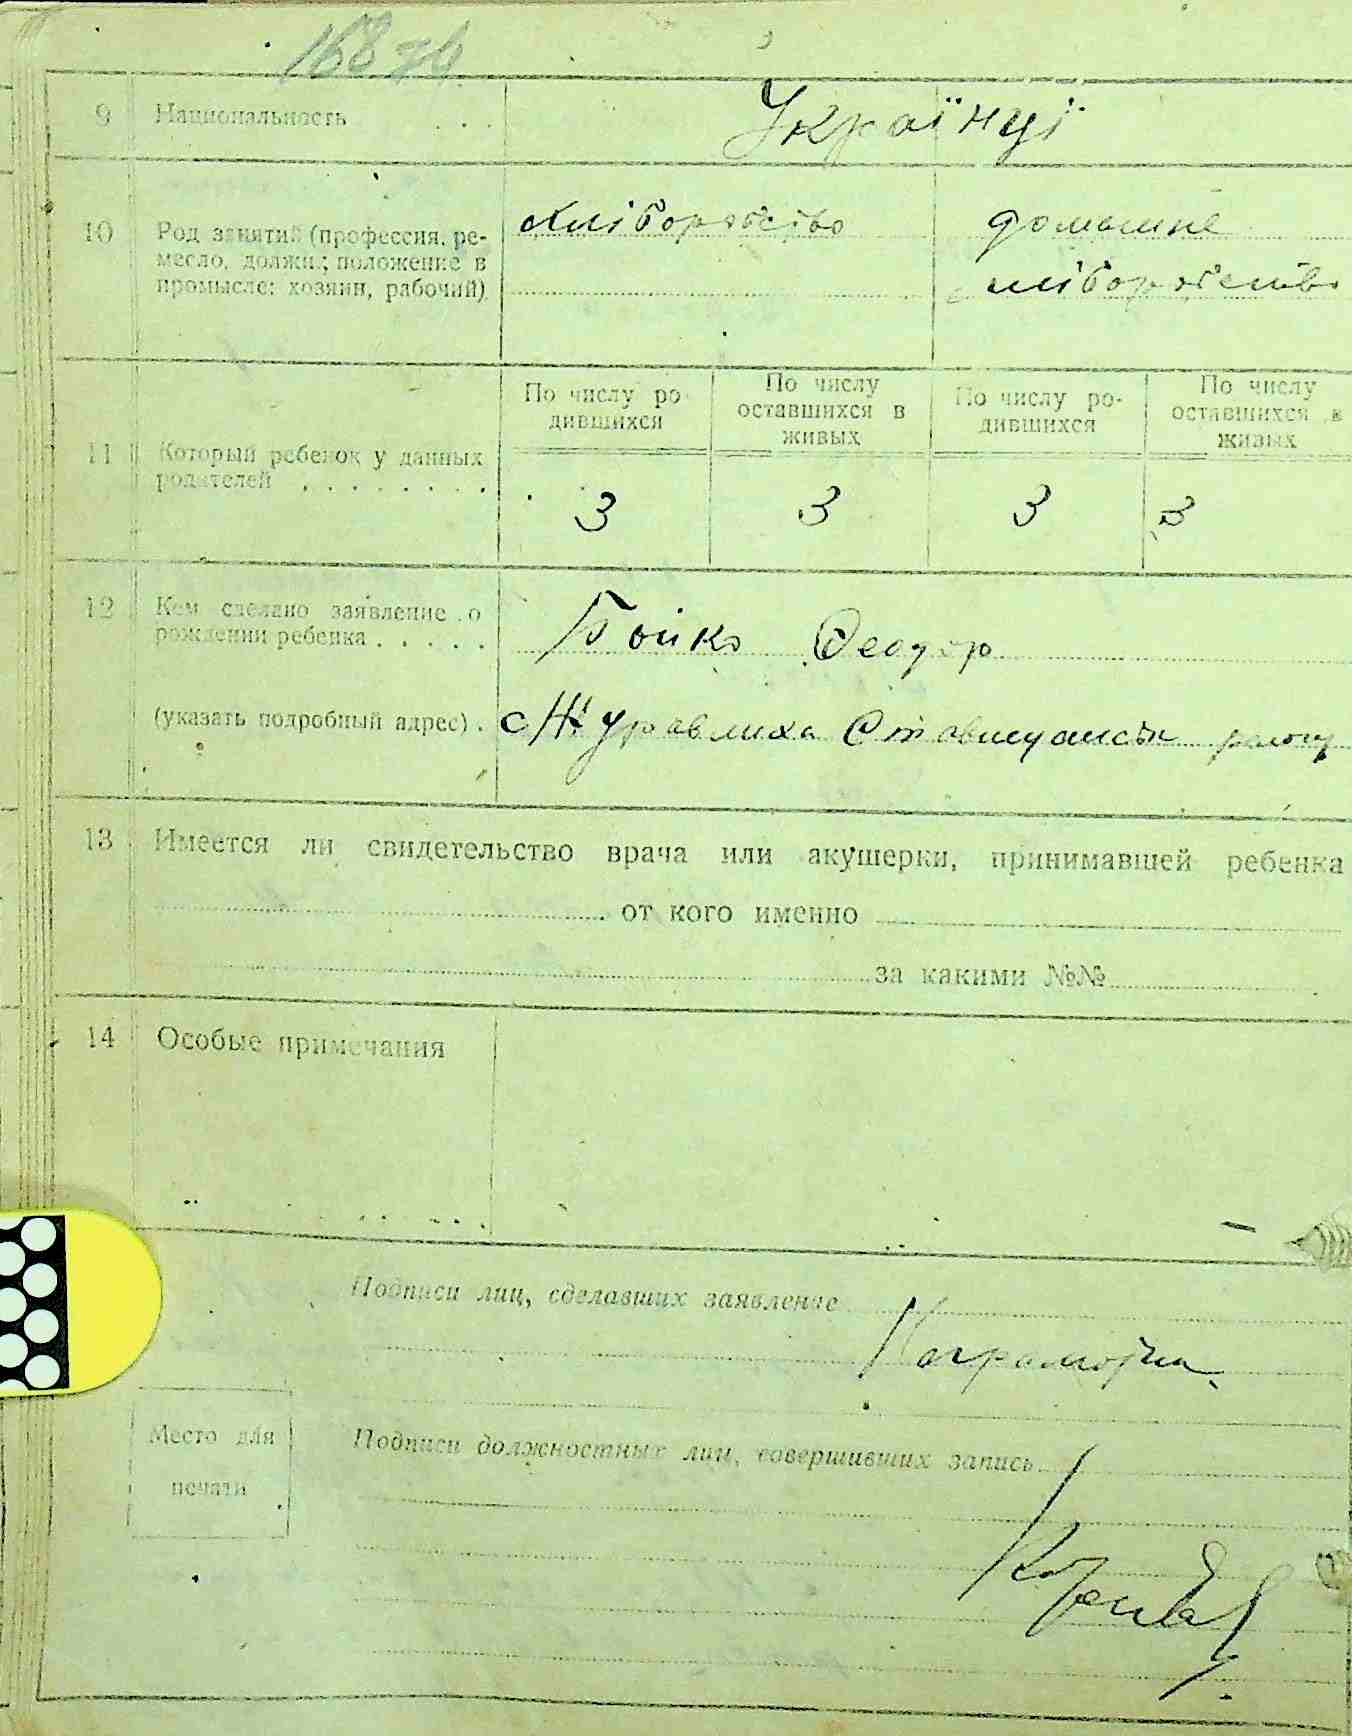 168 зв
9 Национальность . . . Українці
10 Род занятий (профессия, ре-
месло, должн.; положение в
промысле: хозяин, рабочий)
хліборобство
домашнє
хліборобство
11 Который ребенок у данных
родителей . . . . . . . .
По числу ро-
дившихся
По числу
оставшихся в
живых
По числу ро-
дившихся
По числу
оставшихся в
живых
3 3 3 3
12 Кем сделано заявление о
рождении ребенка . . . . .
Бойко Феодор
(указать подробный адрес) . с Журавлиха Ставищанськ району
13 Имеется ли свидетельство врача или акушерки, принимавшей ребенка
от кого именно
за какими №№
14 Особые примечания
Подписи лиц, сделавших заявление
Неграмотн
Место для
печати
Подписи должностных лиц, совершивших запись